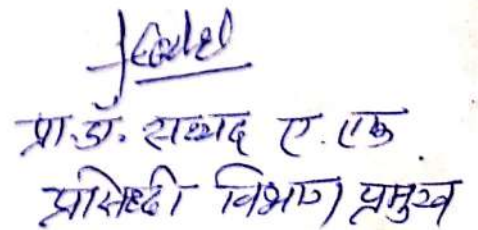 प्रा.डॉ. सय्यद ए. एक.
प्रसिध्दी विभाग प्रमुख